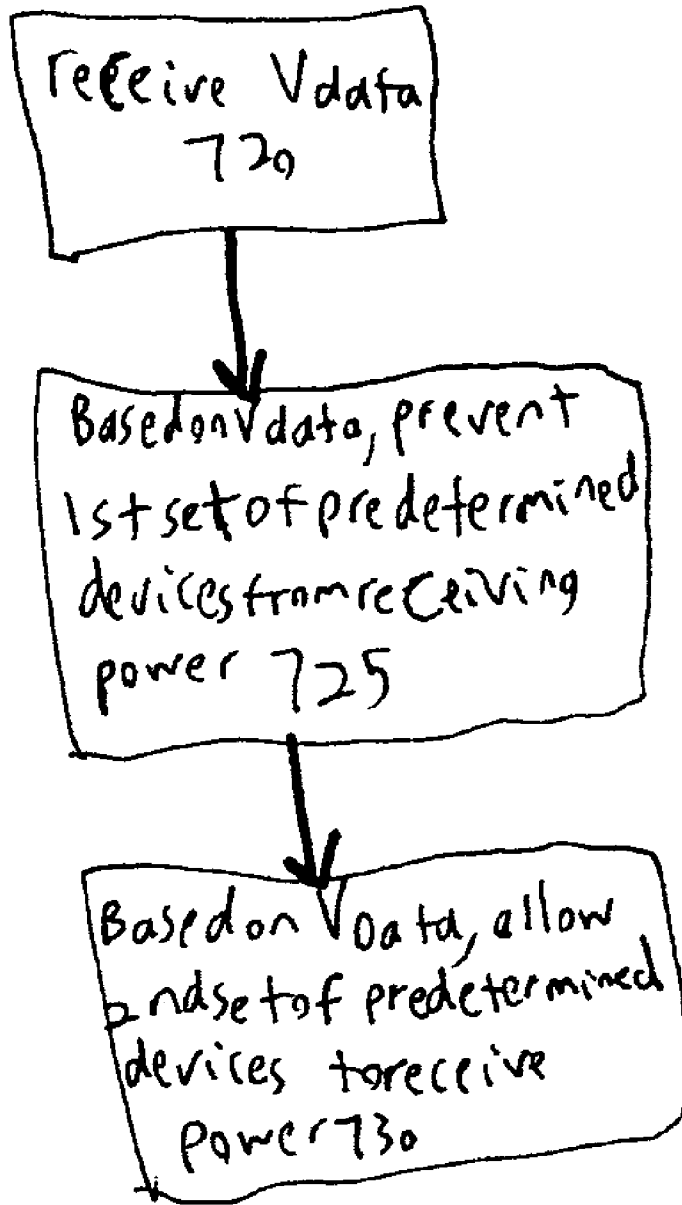 receive Vdata
720
Based on Vdata, prevent
1st set of predetermined
devices from receiving
power 725
Based on VData, allow
2nd set of predetermined
devices to receive
power 730